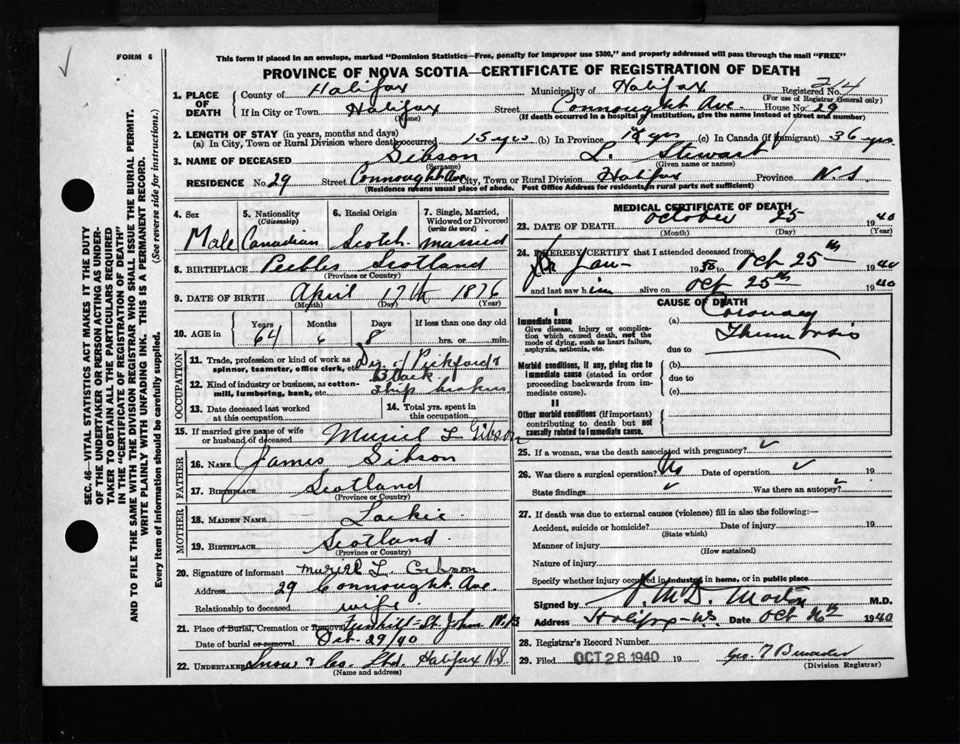 FORM 6
This form if placed in an envelope, marked "Dominion Statistics—Free, penalty for improper use $300," and properly addressed will pass through the mail "FREE"
PROVINCE OF NOVA SCOTIA—CERTIFICATE OF REGISTRATION OF DEATH
SEC. 46—VITAL STATISTICS ACT MAKES IT THE DUTY
OF THE UNDERTAKER OR PERSON ACTING AS UNDER-
TAKER TO OBTAIN ALL THE PARTICULARS REQUIRED
IN THE "CERTIFICATE OF REGISTRATION OF DEATH"
AND TO FILE THE SAME WITH THE DIVISION REGISTRAR WHO SHALL ISSUE THE BURIAL PERMIT.
WRITE PLAINLY WITH UNFADING INK. THIS IS A PERMANENT RECORD.
Every item of information should be carefully supplied. (See reverse side for instructions.)
1. PLACE OF DEATH County of Halifax Municipality of Halifax Registered No.
(For use of Registrar General only)
If in City or Town Halifax Street Connought Ave. House No. 29
(Name) (If death occurred in a hospital or institution, give the name instead of street and number)
2. LENGTH OF STAY (in years, months and days)
(a) In City, Town or Rural Division where death occurred 15 yrs (b) In Province yrs (c) In Canada (if immigrant) 36 yrs
3. NAME OF DECEASED Gibson L. Stewart
(Given name or names)
RESIDENCE No. 29 Street Connought Ave City, Town or Rural Division Halifax Province N.S.
(Residence means usual place of abode. Post Office Address for residents in rural parts not sufficient)
4. Sex Male
5. Nationality (Citizenship) Canadian
6. Racial Origin Scotch
7. Single, Married, Widowed or Divorced (write the word) Married
8. BIRTHPLACE Peebles Scotland
(Province or Country)
9. DATE OF BIRTH April 17th 1876
(Month) (Day) (Year)
10. AGE in Years 64 Months 6 Days 8 If less than one day old hrs. or min.
OCCUPATION
11. Trade, profession or kind of work as spinner, teamster, office clerk, etc. Dir of Pickford &
12. Kind of industry or business, as cotton-mill, lumbering, bank, etc. Black Ship brokers
13. Date deceased last worked at this occupation
14. Total yrs. spent in this occupation
15. If married give name of wife or husband of deceased Muriel L Gibson
FATHER
16. NAME James Gibson
17. BIRTHPLACE Scotland
(Province or Country)
MOTHER
18. MAIDEN NAME Lackie
19. BIRTHPLACE Scotland.
(Province or Country)
20. Signature of informant Muriel L. Gibson
Address 29 Connought Ave.
Relationship to deceased wife
21. Place of Burial, Cremation or Removal Fernhill St. John N.B
Date of burial or removal Oct. 29/40
22. UNDERTAKER Snow & Co. Ltd. Halifax N.S
(Name and address)
MEDICAL CERTIFICATE OF DEATH
23. DATE OF DEATH October 25 1940
(Month) (Day)
24. I HEREBY CERTIFY that I attended deceased from
Jan 1938 to Oct 25th 1940
and last saw him alive on Oct 25th 1940
CAUSE OF DEATH
I
Immediate cause (a) Coronary
Give disease, injury or complication which caused death, not the mode of dying, such as heart failure, asphyxia, asthenia, etc. Thrombosis
due to
Morbid conditions, if any, giving rise to immediate cause (stated in order proceeding backwards from immediate cause). (b)
due to
(c)
II
Other morbid conditions (if important) contributing to death but not causally related to immediate cause.
25. If a woman, was the death associated with pregnancy?
26. Was there a surgical operation? No Date of operation 19
State findings Was there an autopsy?
27. If death was due to external causes (violence) fill in also the following:—
Accident, suicide or homicide? Date of injury 19
(State which)
Manner of injury
(How sustained)
Nature of injury
Specify whether injury occurred in industry, in home, or in public place
Signed by Morton M.D.
Address Halifax N.S. Date Oct 26th 1940
28. Registrar's Record Number
29. Filed OCT 28 1940 19 Geo.
(Division Registrar)